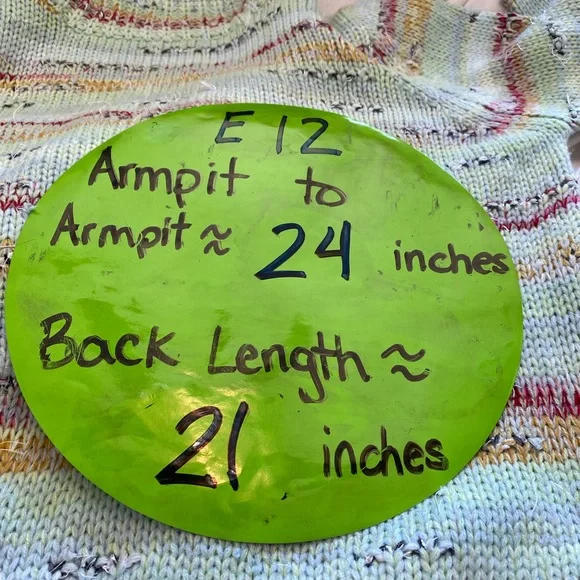 E 12
Armpit to
Armpit ≈ 24 inches
Back Length ≈
21 inches